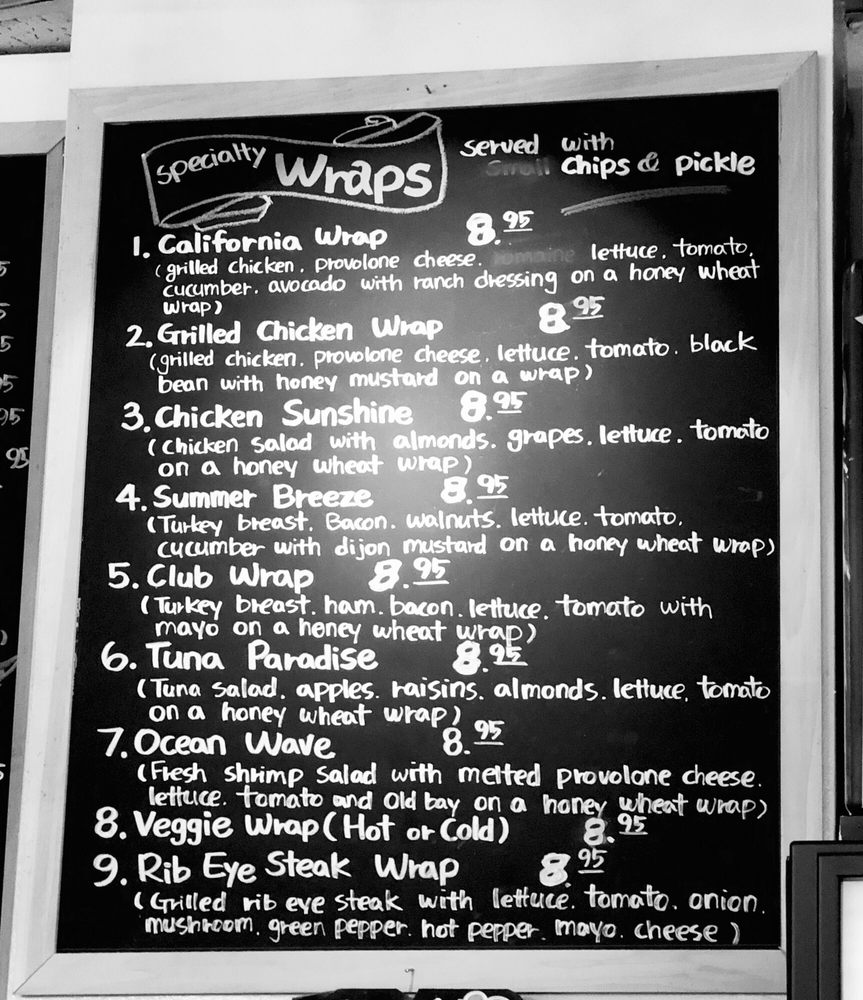 Specialty Wraps served with
Small chips & pickle
1. California Wrap 8.95
(grilled chicken. provolone cheese. romaine lettuce. tomato.
cucumber. avocado with ranch dressing on a honey wheat
wrap)
2. Grilled Chicken Wrap 8.95
(grilled chicken. provolone cheese. lettuce. tomato. black
bean with honey mustard on a wrap)
3. Chicken Sunshine 8.95
(Chicken salad with almonds. grapes. lettuce. tomato
on a honey wheat wrap)
4. Summer Breeze 8.95
(Turkey breast. Bacon. walnuts. lettuce. tomato.
cucumber with dijon mustard on a honey wheat wrap)
5. Club Wrap 8.95
(Turkey breast. ham. bacon. lettuce. tomato with
mayo on a honey wheat wrap)
6. Tuna Paradise 8.95
(Tuna salad. apples. raisins. almonds. lettuce. tomato
on a honey wheat wrap)
7. Ocean Wave 8.95
(Fresh shrimp salad with melted provolone cheese.
lettuce. tomato and old bay on a honey wheat wrap)
8. Veggie Wrap (Hot or Cold) 8.95
9. Rib Eye Steak Wrap 8.95
(Grilled rib eye steak with lettuce. tomato. onion.
mushroom. green pepper. hot pepper. mayo. cheese)